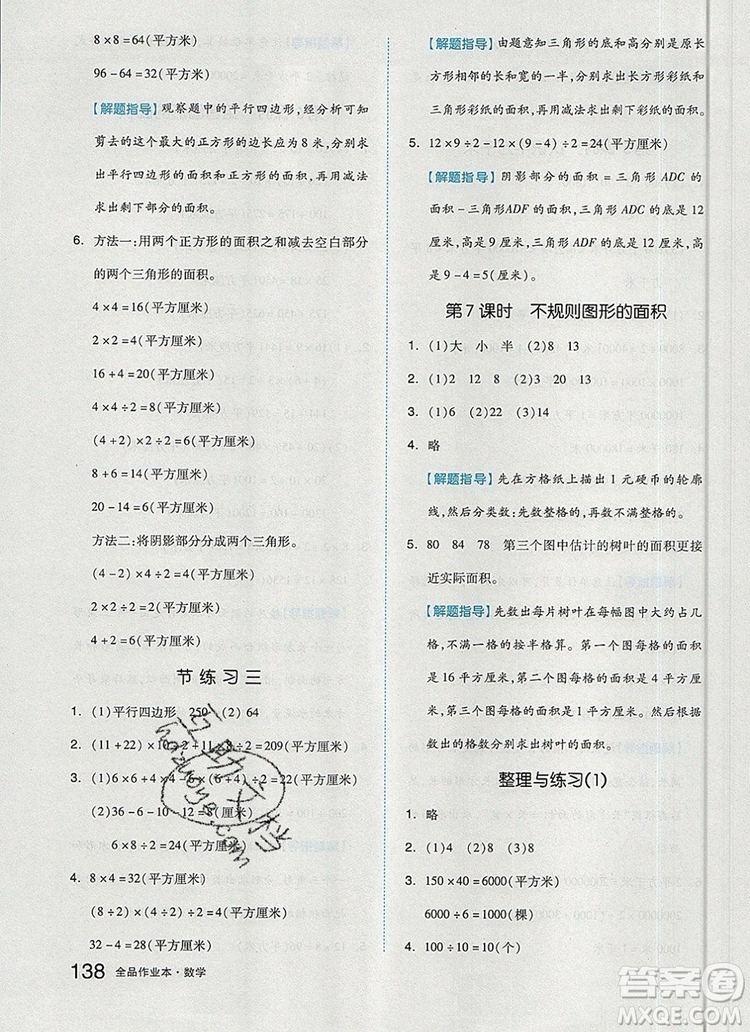 8×8=64(平方米)
96-64=32(平方米)
【解题指导】观察题中的平行四边形,经分析可知
剪去的这个最大的正方形的边长应为8米,先求
出平行四边形和正方形的面积,再用减法
求出剩下部分的面积。
6. 方法一:用两个正方形的面积之和减去空白部分
的两个三角形的面积。
4×4=16(平方厘米)
2×2=4(平方厘米)
16+4=20(平方厘米)
4×4÷2=8(平方厘米)
(4+2)×2÷2=6(平方厘米)
8+6=14(平方厘米)
20-14=6(平方厘米)
方法二:将阴影部分分成两个三角形。
4×2÷2=4(平方厘米)
2×2÷2=2(平方厘米)
4+2=6(平方厘米)
节练习三
1. (1)平行四边形 250 (2)64
2. (11+22)×10÷2+11×8÷2=209(平方厘米)
3. (1)6×6+4×4-6×(6+4)÷2=22(平方厘米)
(2)36-10-6-8-6=6(厘米)
6×6÷2=18(平方厘米)
4. 8×4=32(平方厘米)
(8÷2)×(4÷2)÷2=4(平方厘米)
32-4=28(平方厘米)
138 全品作业本·数学
【解题指导】由题意知三角形的底和高分别是原长
方形相邻的长和宽的一半,分别求出长方形彩纸和
三角形彩纸的面积,再用减法求出剩下的面积。
5. 12×9÷2-12×5÷2=24(平方厘米)
【解题指导】阴影部分的面积=三角形ADC的
面积-三角形ADF的面积,三角形ADC的高是
9厘米,三角形ADF的面积是24平方厘米,高
是9-4=5(厘米)。
第7课时 不规则图形的面积
1. (1)大 小 半 (2)8 13
2. (1)2 12 8 (2)13 (3)20
3. (1)6 (2)22 (3)14
4. 略
【解题指导】先在方格纸上描出1元硬币的轮廓
线,然后分类数:先数整格的,再数不满整格的。
5. 80 84 78 第三个图中估计的树叶的面积更接
近实际面积。
【解题指导】先数出每片树叶在每幅图中大约占几
格,不满一格的按半格算。第一个图每格的面积
是16平方千米,第二个图每格的面积是4平方千
米,第三个图每格的面积是1平方千米,然后根据
数出的格数分别求出树叶的面积。
整理与练习(1)
1. 略
2. (1)4 (2)9 (3)8
3. 150×40=6000(平方米)
6000÷6=1000(棵)
4. 100÷10=10(个)
互助文档
hazuoye.com
答案圈
MXQE.COM